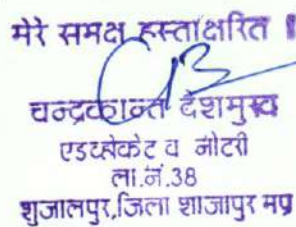 मेरे समक्ष हस्ताक्षरित ।
चन्द्रकान्त देशमुख
एडव्होकेट व नोटरी
ला.नं.38
शुजालपुर,जिला शाजापुर मप्र